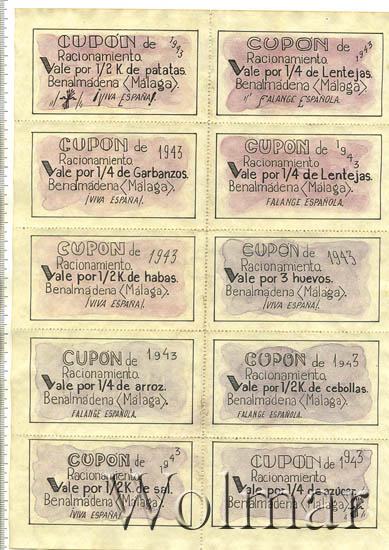 CUPÓN de 1943
Racionamiento.
Vale por 1/2 K de patatas.
Benalmádena (Málaga).
¡VIVA ESPAÑA!.
CUPÓN de 1943
Racionamiento.
Vale por 1/4 de Lentejas.
Benalmádena (Málaga).
FALANGE ESPAÑOLA.
CUPON de 1943
Racionamiento.
Vale por 1/4 de Garbanzos.
Benalmádena (Málaga).
¡VIVA ESPAÑA!.
CUPON de 1943
Racionamiento.
Vale por 1/4 de Lentejas.
Benalmádena (Málaga).
FALANGE ESPAÑOLA.
CUPON de 1943
Racionamiento.
Vale por 1/2 K. de habas.
Benalmádena (Málaga).
¡VIVA ESPAÑA!.
CUPÓN de 1943
Racionamiento.
Vale por 3 huevos.
Benalmádena (Málaga).
¡VIVA ESPAÑA!.
CUPÓN de 1943
Racionamiento.
Vale por 1/4 de arroz.
Benalmádena (Málaga).
FALANGE ESPAÑOLA.
CUPÓN de 1943
Racionamiento.
Vale por 1/2 K. de cebollas.
Benalmádena (Málaga).
FALANGE ESPAÑOLA.
CUPÓN de 1943
Racionamiento.
Vale por 1/2 K. de sal.
Benalmádena (Málaga).
¡VIVA ESPAÑA!.
CUPÓN de 1943
Racionamiento.
Vale por 1/4 de azúcar.
Benalmádena (Málaga).
¡VIVA ESPAÑA!.
Wolmar